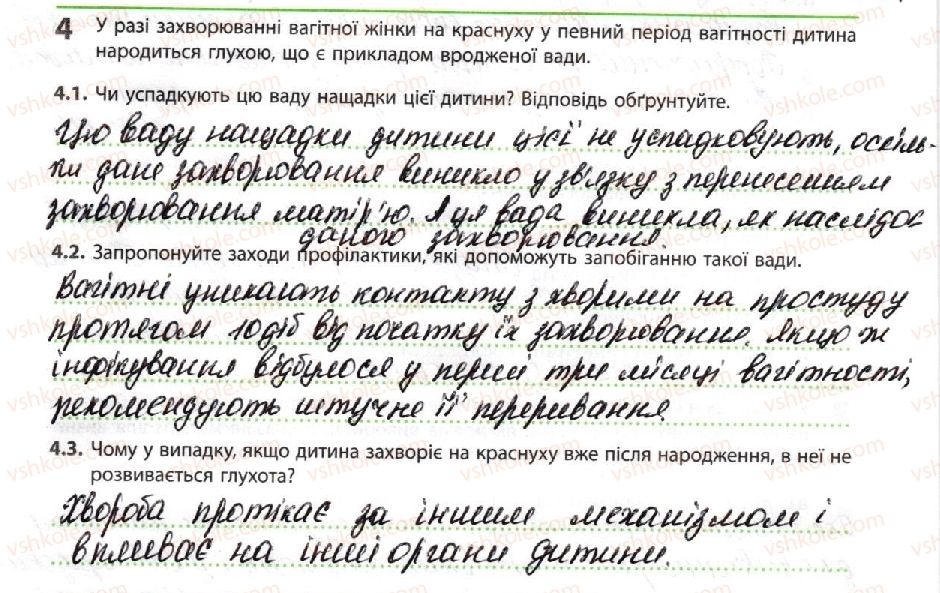 4 У разі захворюванні вагітної жінки на краснуху у певний період вагітності дитина
народиться глухою, що є прикладом вродженої вади.
4.1. Чи успадкують цю ваду нащадки цієї дитини? Відповідь обґрунтуйте.
Цю ваду нащадки дитини цієї не успадковують, оскіль-
ки дане захворювання виникло у зв'язку з перенесенням
захворювання матір'ю. А ця вада виникла, як наслідок
даного захворювання.
4.2. Запропонуйте заходи профілактики, які допоможуть запобіганню такої вади.
Вагітні уникають контакту з хворими на простуду
протягом 10 діб від початку їх захворювання. Якщо ж
інфікування відбулося у перші три місяці вагітності,
рекомендують штучне її переривання.
4.3. Чому у випадку, якщо дитина захворіє на краснуху вже після народження, в неї не
розвивається глухота?
Хвороба протікає за іншим механізмом і
впливає на інші органи дитини.